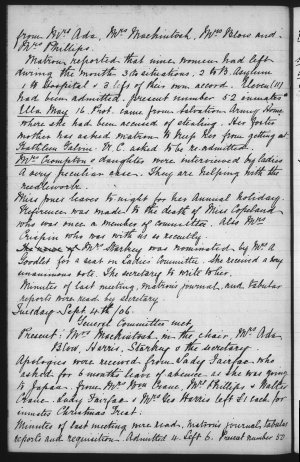 from Mrs Ada, Mrs Mackintosh, Mrs Blow and
Mrs Phillips.
Matron reported that nine women had left
during the month 3 to situations, 2 to B. Asylum
1 to Hospital & 3 left of their own accord. Eleven (11)
had been admitted, present number 52 inmates
Ella May 16 Prot. came from Salvation Army Home
where she had been accused of stealing. Her foster
mother has asked matron to keep her from getting at
Kathleen W.C. asked to be re-admitted.
Mrs Crompton & daughter were interviewed by ladies
A very peculiar case. They are helping with the
needlework.
Miss Jones leaves to night for her annual holiday.
Reference was made to the death of Miss Copeland
who was once a member of committee. Also Mrs
Crispin who was with us recently.
Mrs Starkey was nominated by Mrs A
Goodlet for a seat on Ladies Committee. She received a very
unanimous vote. The secretary to write to her.
Minutes of last meeting, matron's journal and tabular
reports were read by secretary.
Tuesday Sept 4th /06.
General Committee met
Present, Mrs Mackintosh in the chair, Mrs Ada
Blow, Harris, Starkey & the secretary
Apologies were received from Lady Fairfax who
asked for 6 months leave of absence as she was going
to Japan. from Mrs Crane, Mrs Phillips & Walter
Crane. Lady Fairfax & Mrs Geo Harris left £1 each for
inmates Christmas Treat.
Minutes of last meeting were read, matron's journal, tabular
reports and requisition. Admitted 4. Left 6. Present number 50